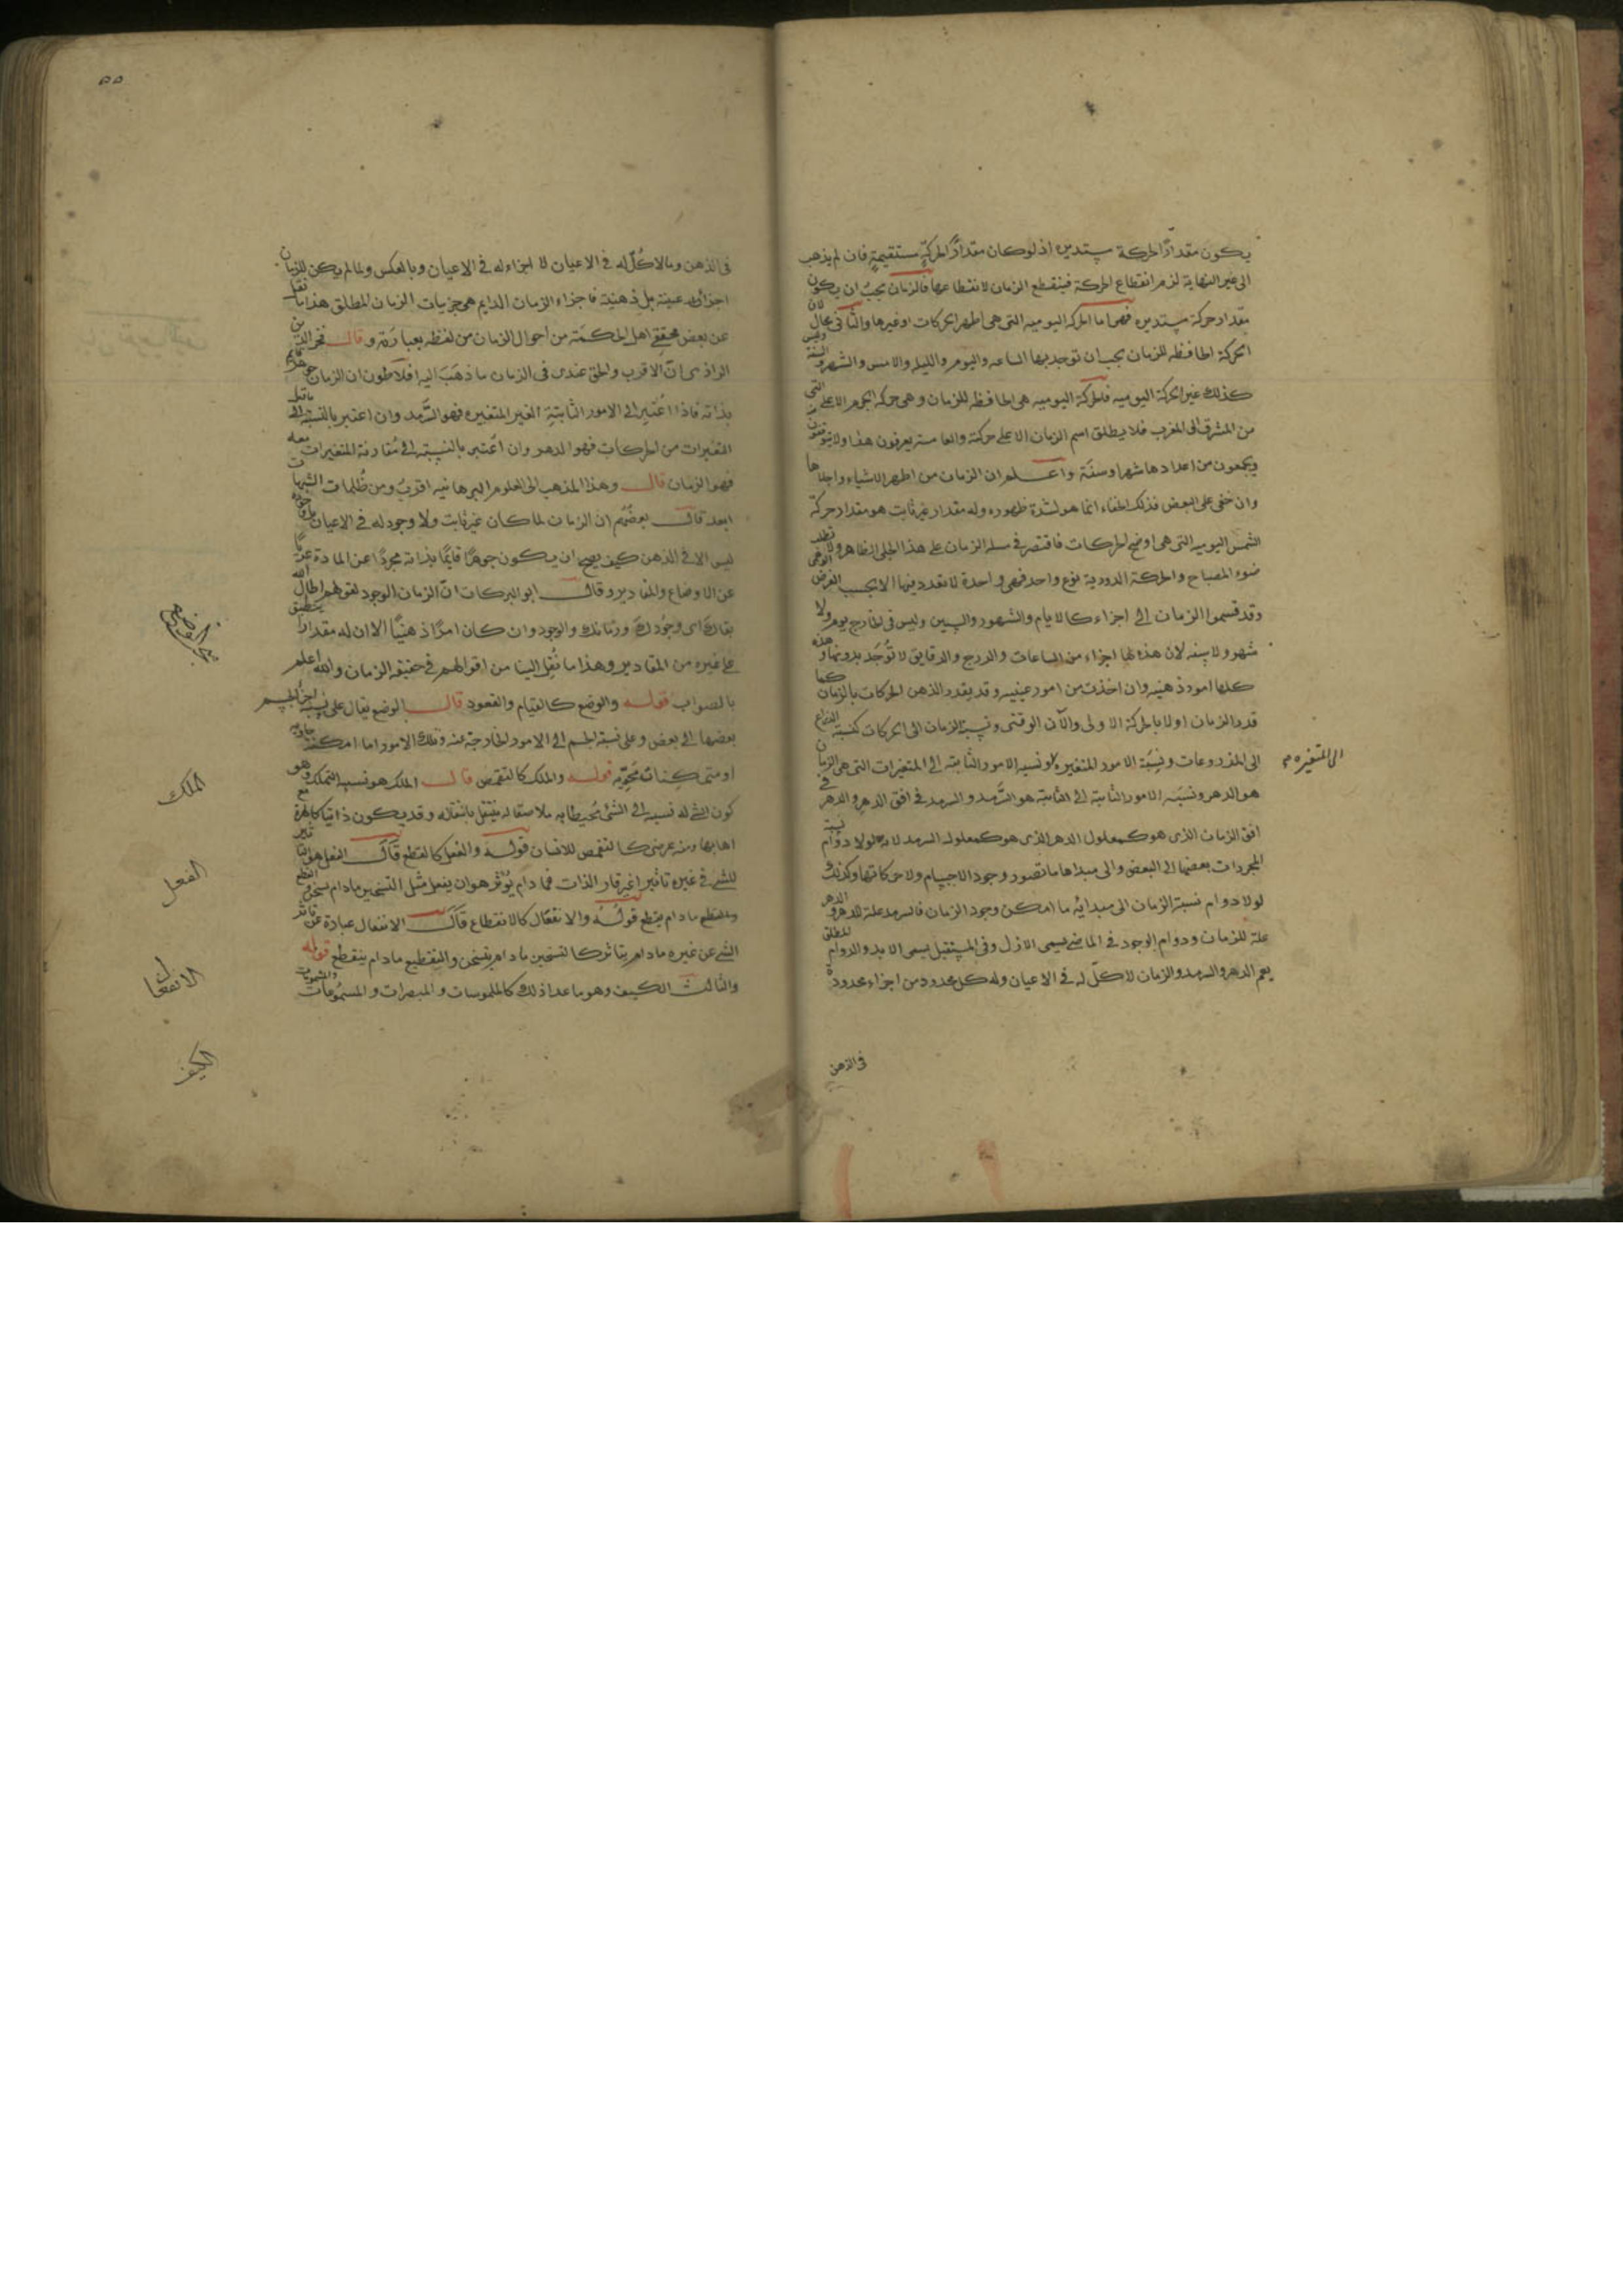 يكون مقدارًا لحركة مستديرة اذ لو كان مقدارًا لحركةٍ مستقيمةٍ فان لم يذهب
الى غير النهاية لزم انقطاع الحركة فينقطع الزمان لانقطاعها فالزمان يجبُ ان يكون
مقدار حركة مستديره فهى اما الحركه اليوميه التى هى اظهر الحركات او غيرها والثانى محال لان
الحركة الحافظه للزمان يجب ان توجد بها الساعه واليوم والليله والامس والشهر والسنة وليس
كذلك غير الحركة اليوميه فالحركة اليوميه هى الحافظه للزمان وهى حركه الجرم الاعلى التى
من المشرق الى المغرب فلا يطلق اسم الزمان الا على حركته والعامة يعرفون هذا ولا يتوقفون
ويجمعون من اعدادها شهرا وسنَة واعلم ان الزمان من اظهر الاشياء واجلاها
وان خفى على البعض فذلك الخفاء انما هو لشدة ظهوره وله مقدار غير ثابت هو مقدار حركة
الشمس اليوميه التى هى اوضح الحركات فاقتصر فى مسله الزمان على هذا الجلى الظاهر ولا تطلب
ضوء المصباح والحركة الدورية نوع واحد فهى واحدة لا تعدد فيها الا بحسب الفرض الوهمى
وقد قسموا الزمان الى اجزاء كالايام والشهور والسنين وليس فى الخارج يوم ولا
شهر ولا سنه لان هذه لها اجزاء من الساعات والدرج والدقايق لا تُوجَد بدونها وهذه
كلها امور ذهنيه وان اخذت من امور عينيه وقد يقدر الذهن الحركات بالزمان كما
قدر الزمان اولا بالحركة الاولى والآن الوقتى ونسبة الزمان الى الحركات كنسبة الذراع
الى المذروعات ونسبَة الامور المتغيره ونسبه الامور الثابته الى المتغيرات التى هى الزمان
الى المتغيره
هو الدهر ونسبَه الامور الثابتة الى الثابتة هو السَّرمد والسرمد فى افق الدهر والدهر فى
افق الزمان الذى هو كمعلول الدهر الذى هو كمعلول السرمد لانه لولا دوام نسبة
المجردات بعضها الى البعض والى مبداها ما تصور وجود الاجسام ولا حركاتها وكذلك
لولا دوام نسبة الزمان الى مبدائه ما امكن وجود الزمان فالسرمد علة للدهر والدهر
علة للزمان ودوام الوجود فى الماضى يسمى الازل وفى المستقبل يسمى الابد والدوام المطلق
يعم الدهر والسرمد والزمان لا كلّ له فى الاعيان وله كل محدود من اجزاء محدودة
فى الذهن
٥٥
فى الذهن وما لا كُلّ له فى الاعيان لا اجزاء له فى الاعيان وبالعكس ولما لم يكن للزمان
اجزاء عينية بل ذهنيّة فاجزاء الزمان الدايم هى جزييات الزمان المطلق هذا ما نقل
عن بعض محققى اهل الحكمَة من احوال الزمان من لفظه بعبارَته وقال فخر الدين
الرازى انّ الاقرب والحق عندى فى الزمان ما ذهَبَ اليه افلاطون ان الزمان جوهر قايم
بذاته فاذا اُعتبر الى الامور الثابتةِ الغير المتغيره فهو السَّرمد وان اعتبر بالنسبة الى ما قبل
المتغيرات من الحركات فهو الدهر وان اُعتبر بالنسبَة الى مُقارنة المتغيرات معه
فهو الزمان قال وهذا المذهب الى العلوم البرهانيه اقربُ ومن ظُلمات الشبهات
ابعد قال بعضُهم ان الزمان لما كان غيرَ ثابت ولا وجود له فى الاعيان بل وجوده
ليس الا فى الذهن كيف يصح ان يكون جوهرًا قايمًا بذاته مجردًا عن المادة عريًا
عن الاوضاع والمقادير وقال ابو البركات انّ الزمان الوجود لقولهم اطال الله
بقاك اى وجُودكَ وزمانك والوجود وان كان امرًا ذهنيًا الا ان له مقدارا ينطبق
على غيره من المقادير وهذا ما نُقِلَ الينا من اقوالهم فى حقيقه الزمان والله اعلم
بالصواب قوله والوضع كالقيام والقعود قال الوضع يقال على نسبة اجزاء الجسم
بعضها الى بعض وعلى نسبة الجسم الى الامور الخارجة عنه وتلك الامور اما امكنة حاوية
او متمكنات محويّه قوله والملك كالتقمص قال الملك هو نسبه التملك وهو
كون الشى له نسبه الى الشئ محيطا به ملاصقا له ينتقل بانتقاله وقد يكون ذاتيا كالهرة مع
اهابها ومنه عرضى كالتقمص للانسان قوله والفعل كالقطع قال الفعل هو تاثير
للشى فى غيره تاثيرا غير قار الذات فما دام يُؤثر هو ان يفعل مثل التسخين مادام يسخن
والقطع مادام يقطع قولُه والانفعَال كالانقطاع قال الانفعال عبادة عن تاثر
الشى عن غيره مادام يتاثر كالتسخين مادام يتسخن والتقطيع مادام ينقطع قوله
والثالث الكيف وهو ما عدا ذلك كالملموسات والمبصرات والمسمُوعات والمشمومات
الملك
الفعل
الانفعال
الكيف